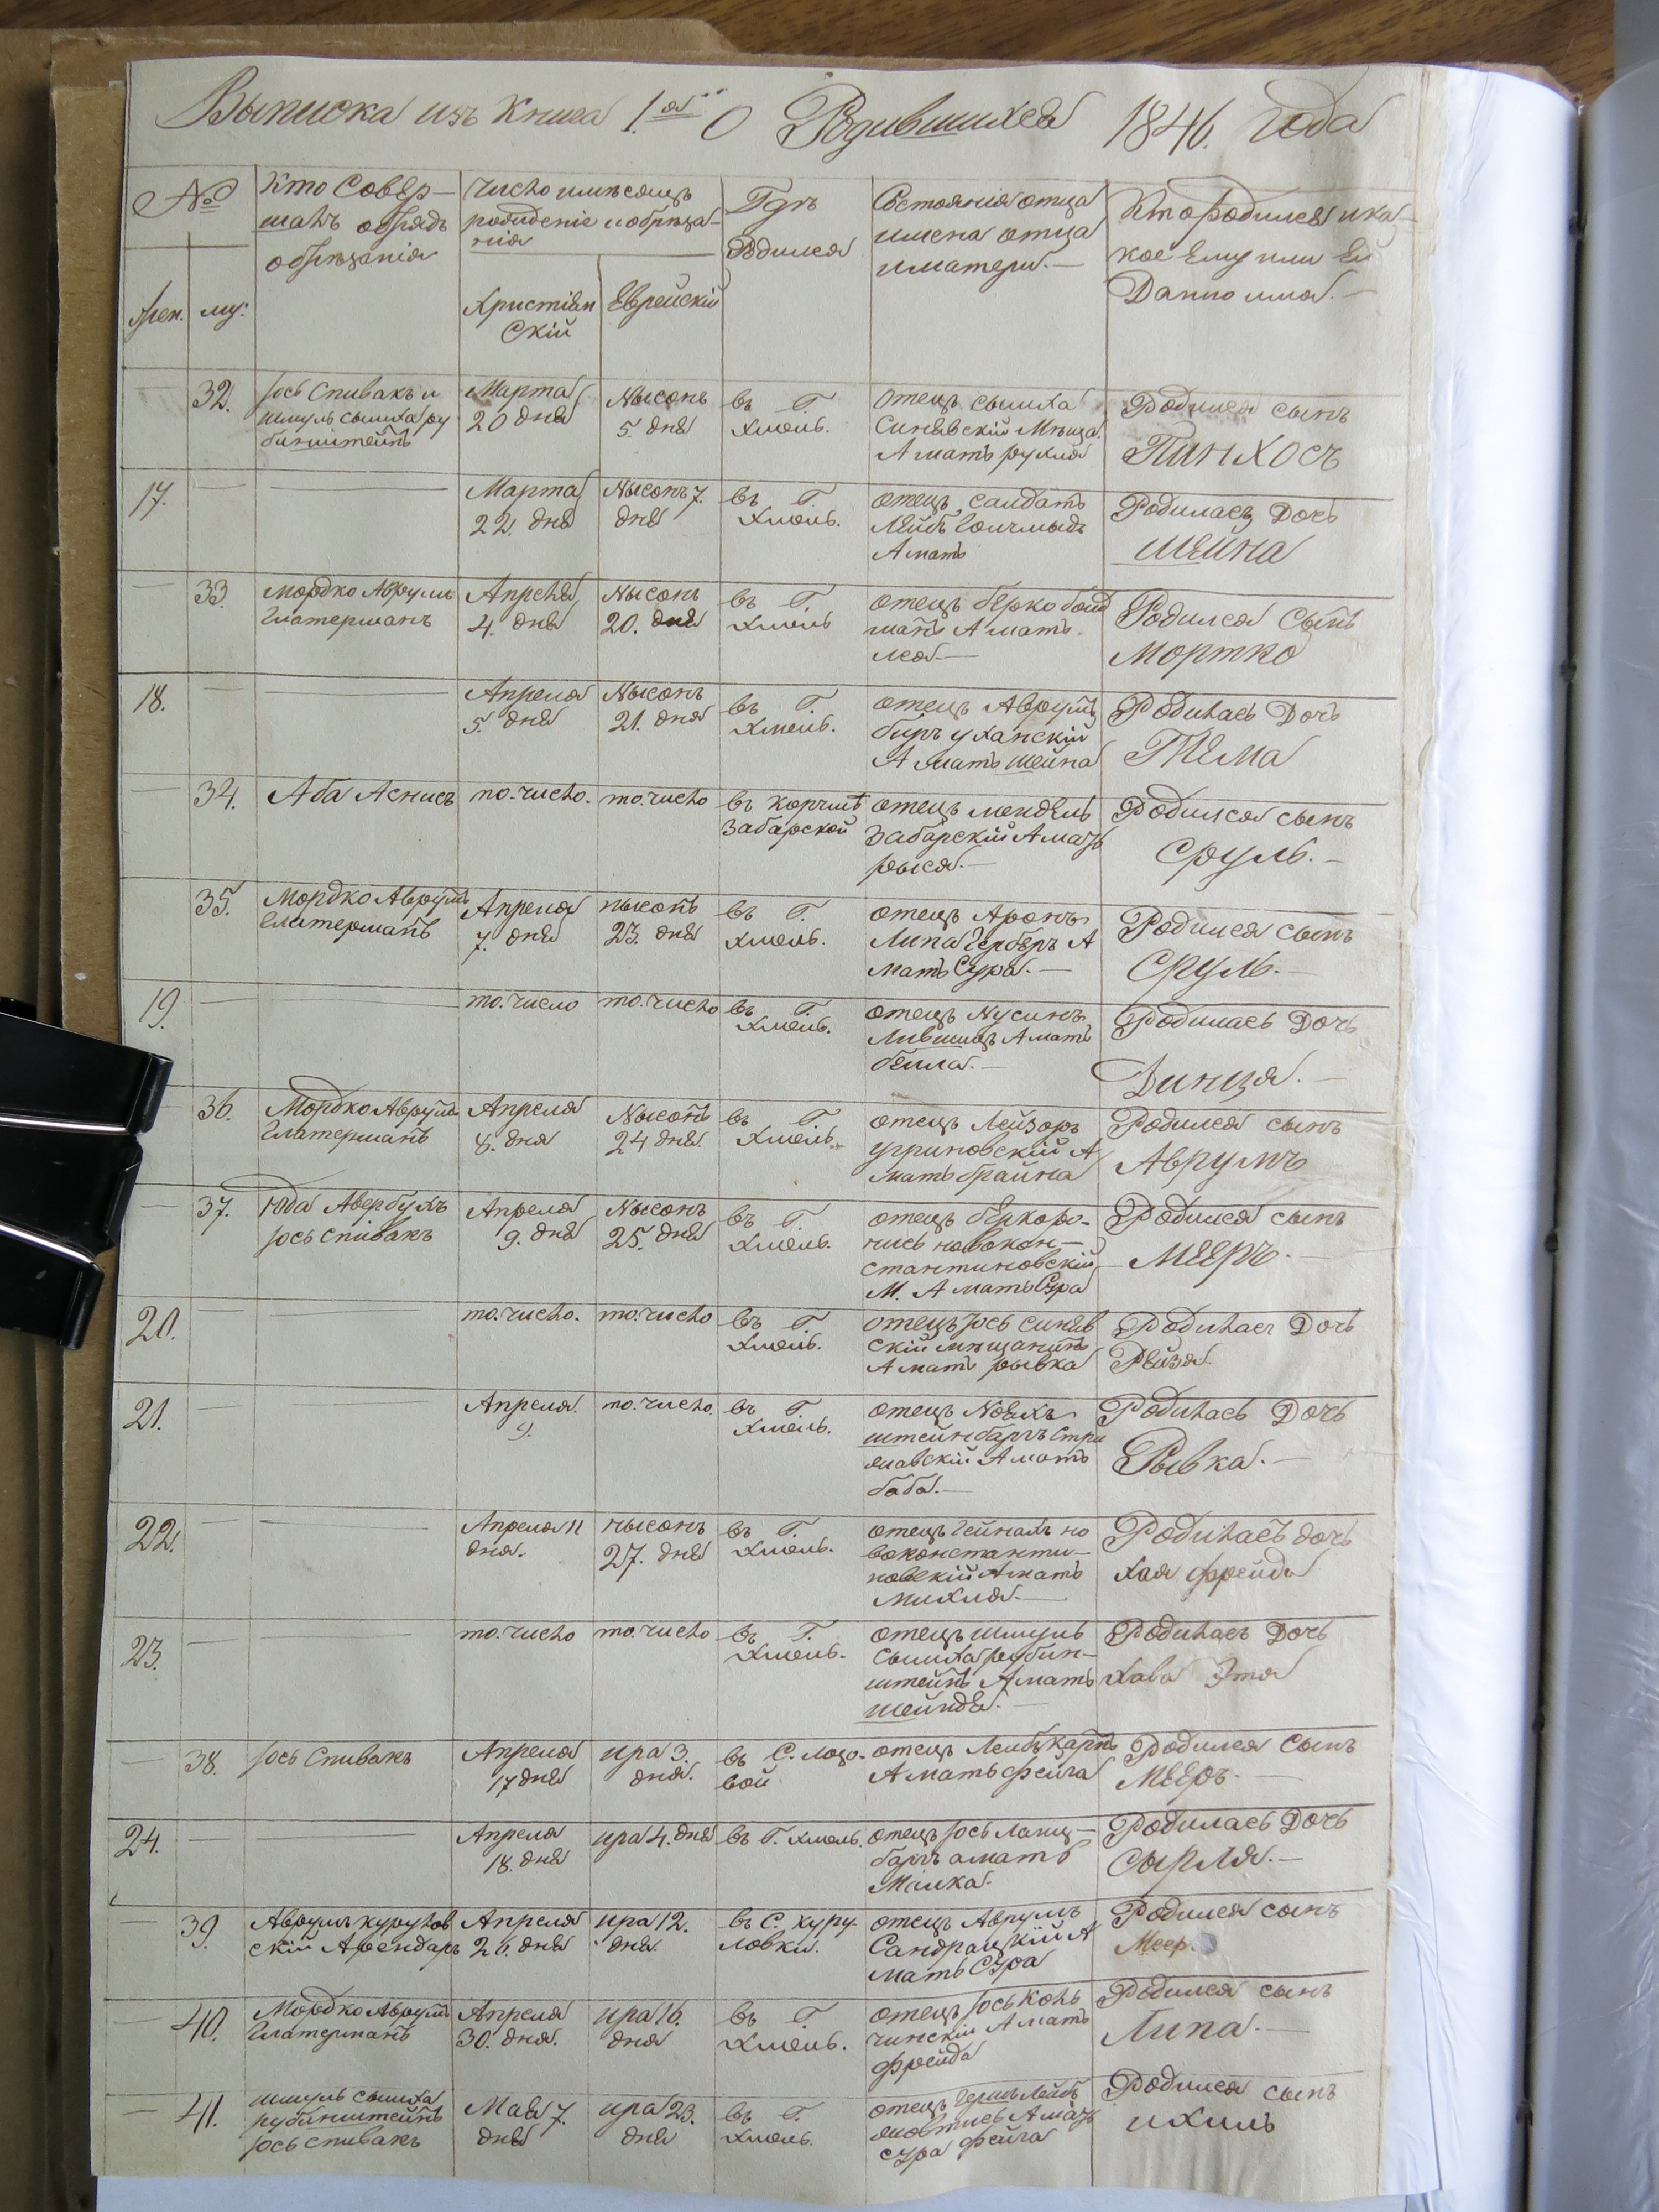 Выписка изъ книга 1.ая О Родившихся 1846. года
№
жен. му:
Кто Совер-
шалъ обрядъ
обрѣзанія
Число и мѣсяцъ
рождение и обрѣза-
нія
Христіан
Скій
Еврейскій
Гдѣ
Родился
Состоянія отца
имена отца
и матери.—
Кто Родился и ка-
кое Ему или Ей
Данно имя.—
32.
Іось Спивакъ и
шмуль сымха ру
бинштейнъ
Марта
20 дня
Нысонъ
5. дня
въ Г.
Хмель.
Отецъ сымха
Синявскій Мѣща.
А мать рухля
Родился сынъ
Пинхосъ
17.
Марта
22. дня
Нысонъ 7.
дня
въ Г.
Хмель.
отецъ, салдатъ
Лейбъ
А мать
Родилась Дочь
шейна
33.
мордко Аврумъ
Глатерманъ
Апреля
4. дня
Нысонъ
20. дня
въ Г.
Хмель
отецъ берко бойд
манъ А мать
лея—
Родился Сынъ
Мортко
18.
Апреля
5. дня
Нысонъ
21. дня
въ Г.
Хмель.
отецъ Аврумъ
А мать шейна
Родилась Дочь
Тема
34.
Аба Аснисъ
то. число.
то. число
въ корчмѣ
Забарской
отецъ мендель
Забарскій А мать
рыся.—
Родился сынъ
Сруль.—
35.
Мордко Аврумъ
Глатерманъ
Апреля
7. дня
нысонъ
23. дня
въ Г.
Хмель.
отецъ Аронъ
Липа Герберъ А
мать Сура.—
Родился сынъ
Сруль.—
19.
то. число
то. число
въ Г.
Хмель.
отецъ Нусинъ
Лившицъ А мать
бейла.—
Родилась Дочь
Динця.—
36.
Мордко Аврумъ
Глатерманъ
Апреля
8. дня
Нысонъ
24 дня.
въ Г.
Хмель.
отецъ Лейзоръ
угриновскій А
мать брайна
Родился сынъ
Аврумъ
37.
Юда Авербухъ
Іось спивакъ
Апреля
9. дня
Нысонъ
25. дня
въ Г.
Хмель.
отецъ беркоро-
нисъ новокон-
стантиновскій
М. А мать Сура
Родился сынъ
Мееръ.—
20.
то. число.
то. число
въ Г.
Хмель.
отецъ Іось синяв
скій мѣщанинъ
А мать рывка
Родилась Дочь
Рейзя.
21.
Апреля.
9.
то. число.
въ Г.
Хмель.
отецъ Ноехъ
штейнбаргъ стри
жавскій А мать
баба.—
Родилась Дочь
Рывка.—
22.
Апреля 11
дня.
нысонъ
27. дня
въ Г.
Хмель.
отецъ Гейнахъ но
воконстанти-
новскій А мать
михля.—
Родилась дочь
Хая фрейда
23.
то. число
то. число
въ Г.
Хмель.
отецъ шмуль
Сымха рубин-
штейнъ А мать
шейндя.—
Родилась Дочь
Хава Этя
38.
Іось Спивакъ
Апреля
17 дня
ира 3.
дня.
въ С. лозо-
вой
отецъ Лейбъ карпъ
А мать фейга
Родился Сынъ
Мееръ.—
24.
Апреля
18. дня
ира 4. дня
въ Г. Хмель.
отецъ Іось Ланц-
баргъ а мать
Малка.
Родилась Дочь
Сырля.—
39.
Аврумъ куруков
скій Арендарь
Апреля
26. дня
ира 12.
дня.
въ С. куру
ловки.
отецъ Аврумъ
Сандрацкій А
мать Сура
Родился сынъ
Меер.
40.
Мордко Аврумъ
Глатерманъ
Апреля
30. дня.
ира 16.
дня
въ Г.
Хмель.
отецъ Іось коль
чинскій А мать
фрейда
Родился сынъ
Липа.—
41.
шмуль сымха
рубинштейнъ
Іось спивакъ
Мая 7.
дня
ира 23.
дня
въ Г.
Хмель.
отецъ Герш Лейбъ
А мать
сура фейга
Родился сынъ
ихиль